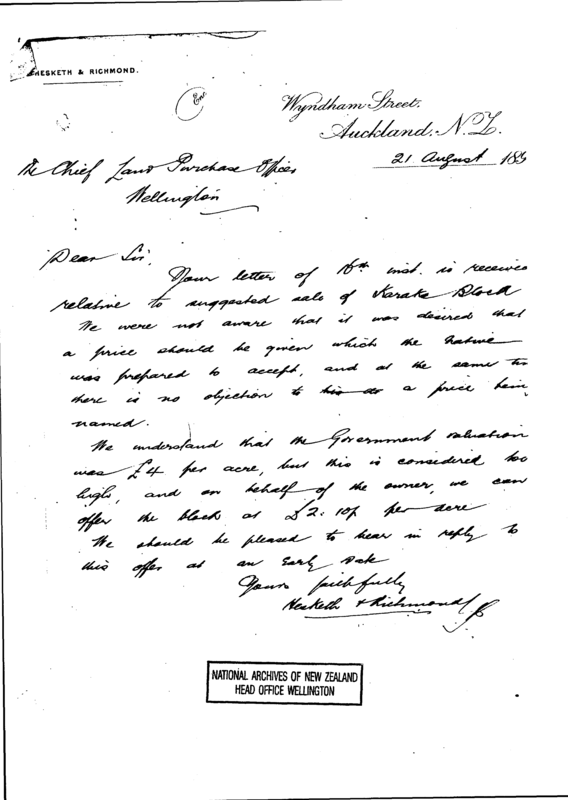 HESKETH & RICHMOND.
Wyndham Street.
Auckland. N.Z.
21 August 189
The Chief Land Purchase Officer
Wellington
Dear Sir,
Your letter of 16th inst. is received
relative to suggested sale of Karaka Block
We were not aware that it was desired that
a price should be given which the native
was prepared to accept, and at the same
there is no objection to a price being
named.
We understand that the Government valuation
was £4 per acre, but this is considered too
high, and on behalf of the owner, we can
offer the block at £2:10/- per acre
We should be pleased to hear in reply to
this offer at an early date
Yours faithfully
Hesketh & Richmond
NATIONAL ARCHIVES OF NEW ZEALAND
HEAD OFFICE WELLINGTON